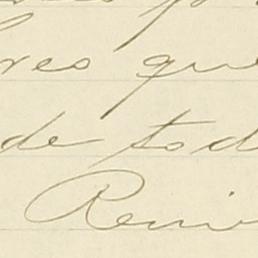 res que
de tod
Remi